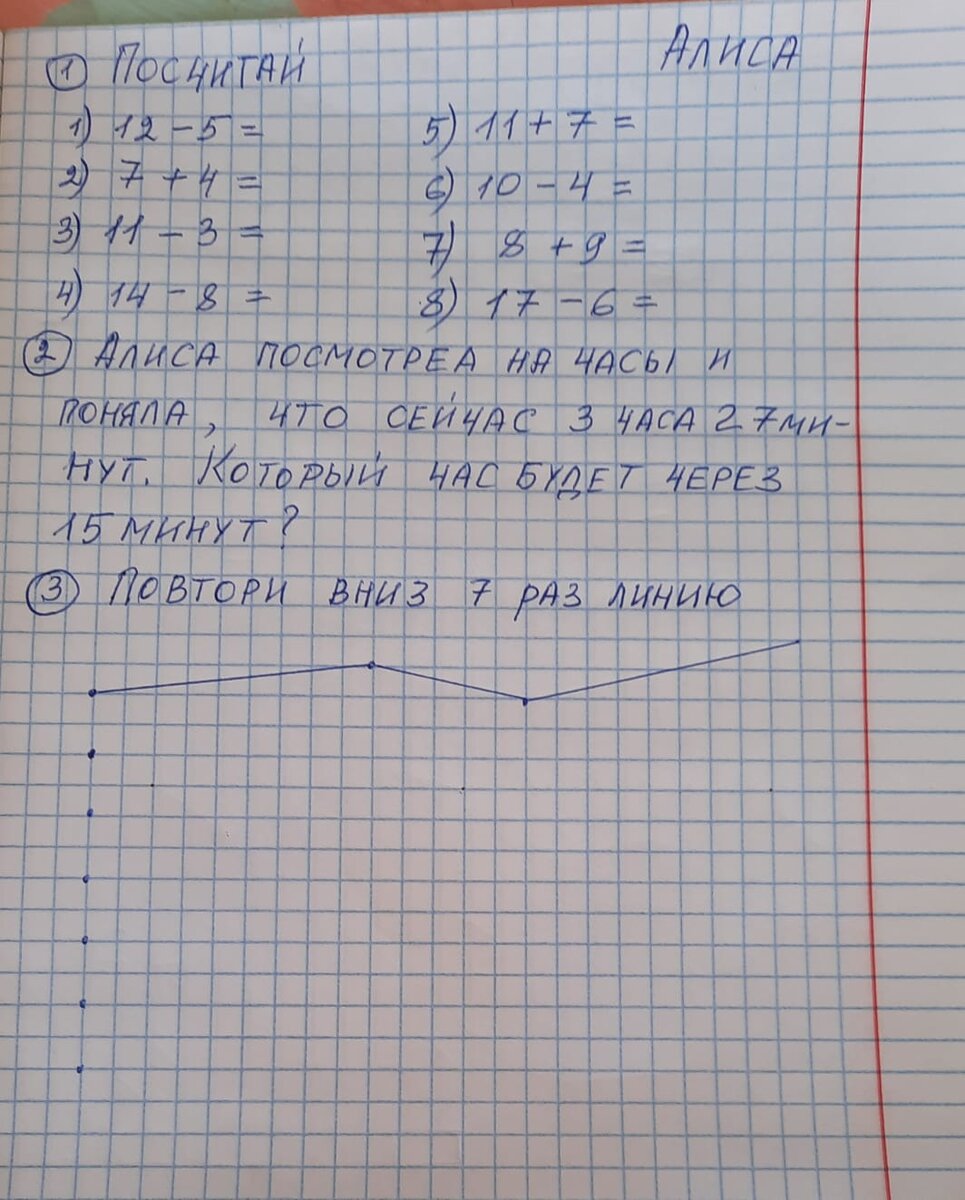 ① Посчитай Алиса
1) 12 - 5 = 5) 11 + 7 =
2) 7 + 4 = 6) 10 - 4 =
3) 11 - 3 = 7) 8 + 9 =
4) 14 - 8 = 8) 17 - 6 =
② Алиса посмотреа на часы и
поняла, что сейчас 3 часа 27 ми-
нут. Который час будет через
15 минут?
③ Повтори вниз 7 раз линию